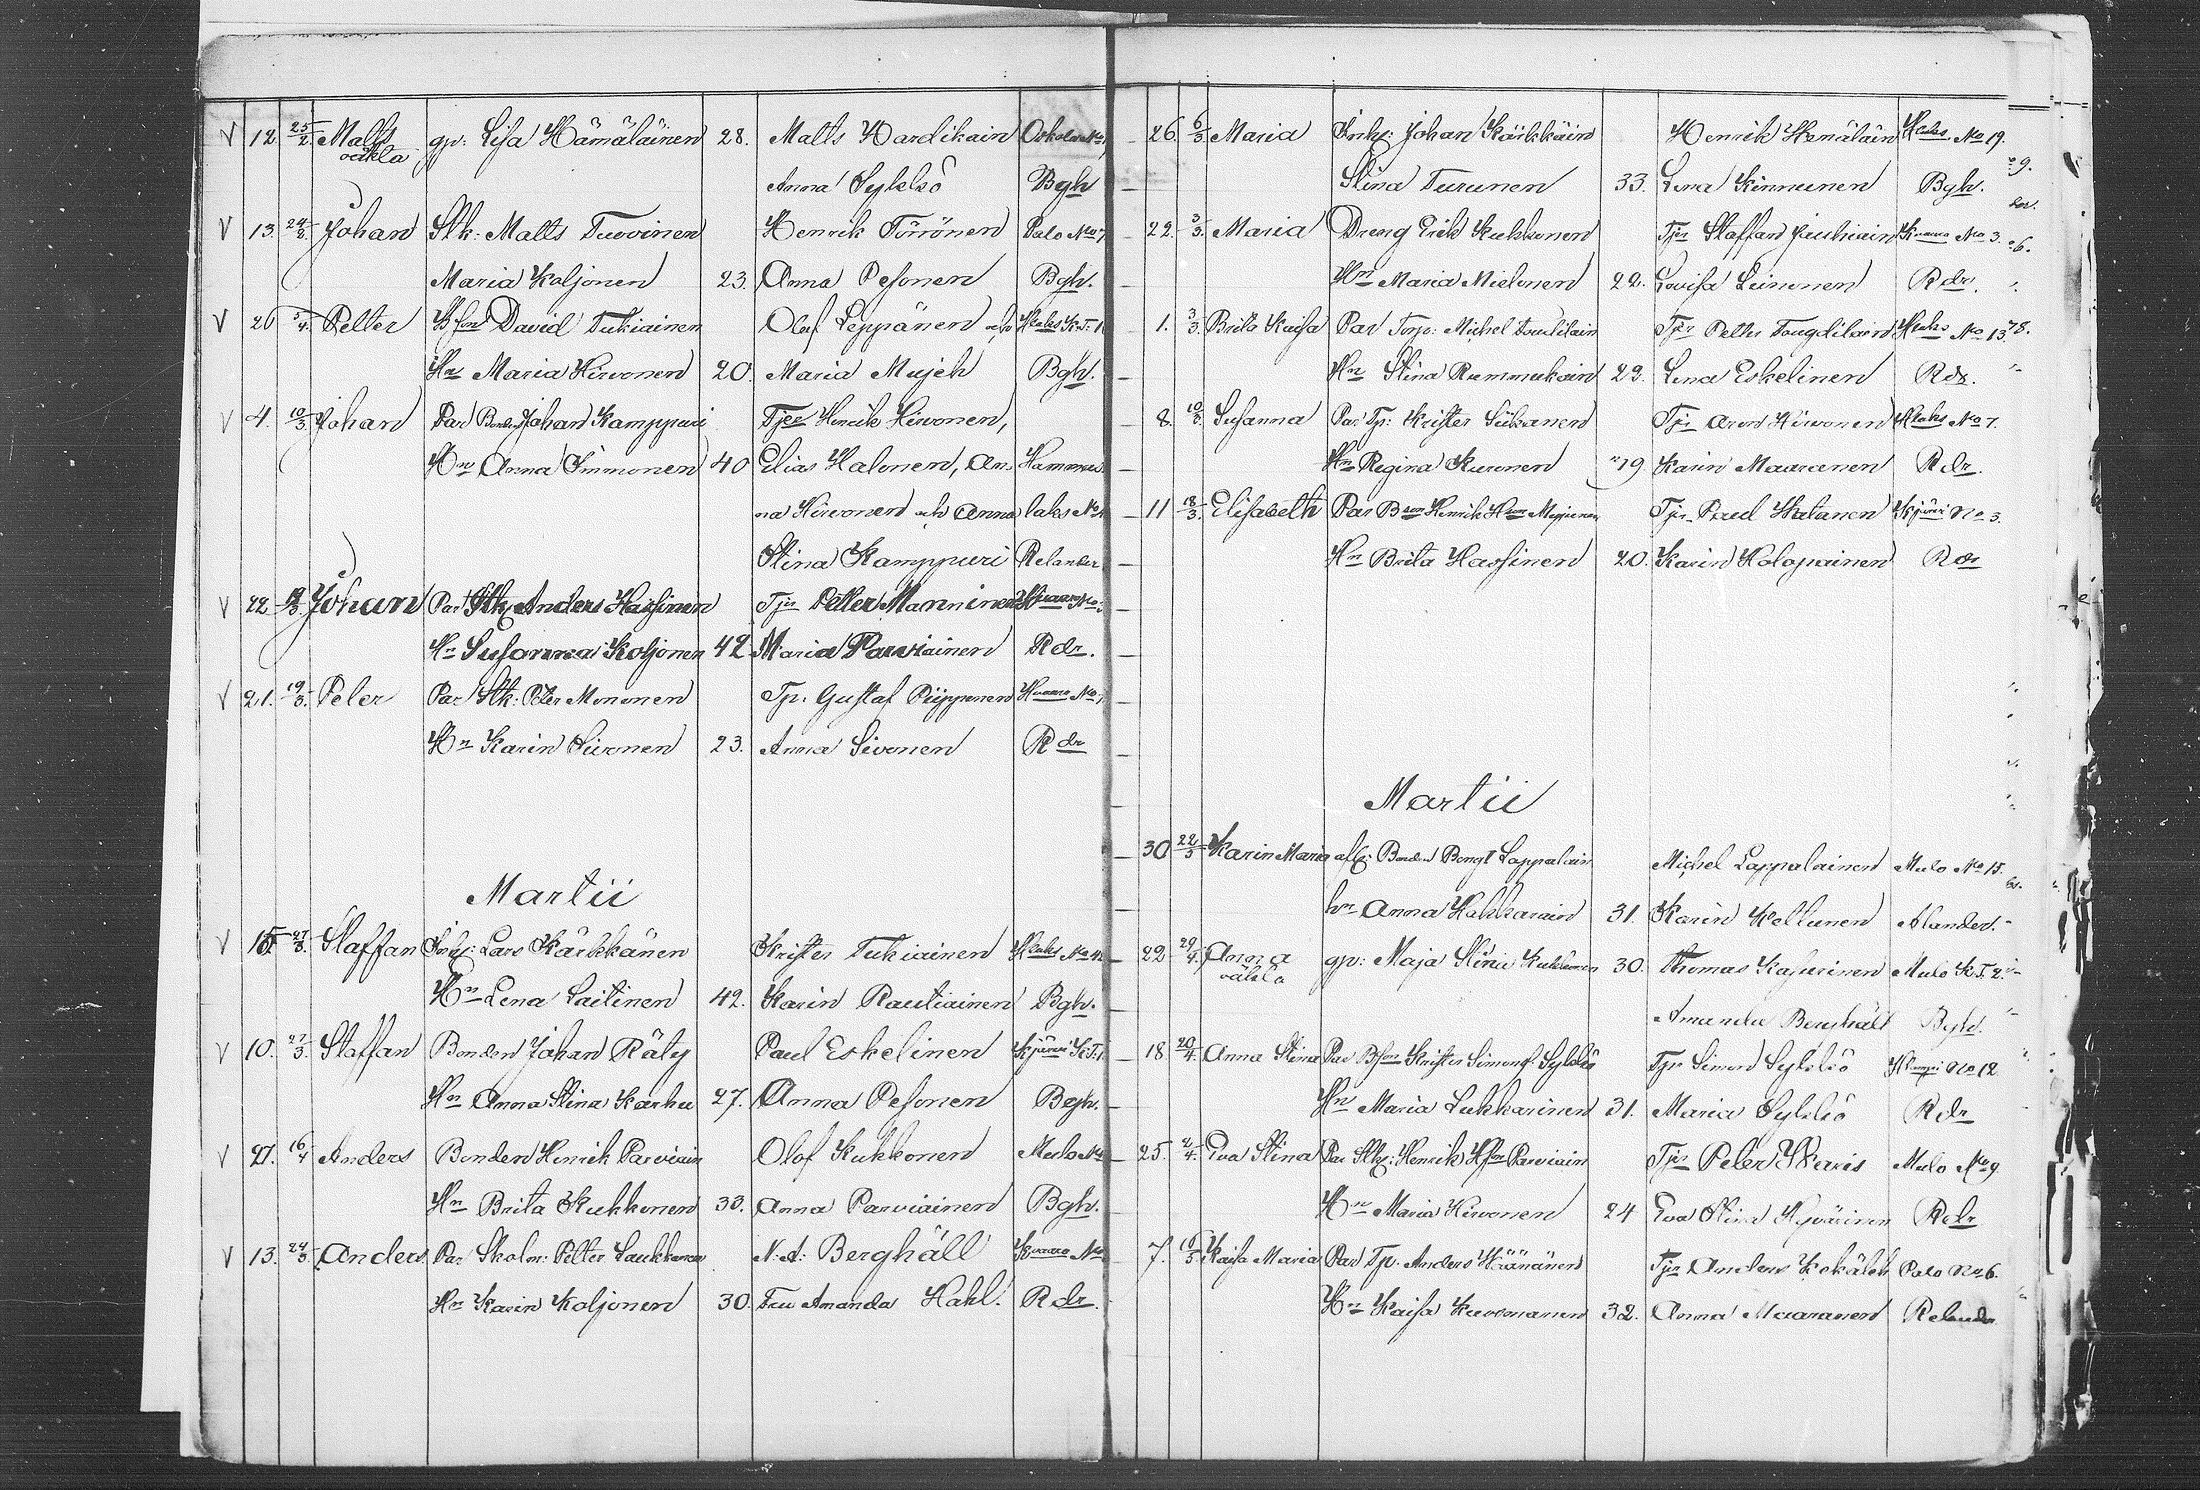 V 12. 25/2. Matts gp: Lisa Hämäläinen 28. Matts Hardikain
oäkta Anna Sykkö Bgh
V 13. 24/2. Johan Stk: Matts Tuovinen Henrik Törönen Palo No 7
Maria Koljonen 23. Anna Pesonen Bgh.
V 26 5/4. Petter Bson David Tukiainen Olof Leppänen och
Hn Maria Hirvonen 20. Maria Mujeh Bgh.
V 4. 10/3. Johan Par Bonden Johan Kamppuri Tjer Henrik Hirvonen,
Hn Anna Immonen 40 Elias Halonen, An- Hammas-
na Hirvonen och Anna laks No
Stina Kamppuri Relander
V 22. Johan Par Stk Anders Hassinen Tjr Petter Manninen
Hn Susanna Koljonen 42 Maria Parviainen Rdr.
V 21. 19/3. Peter Par Stk: Peter Mononen Tp. Gustaf Piipponen
Hn Karin Sivonen 23. Anna Sivonen Rdr
Martii
V 15. 27/3. Staffan Inhs: Lars Kärkkänen Krister Tukiainen
Hn Lena Laitinen 42. Karin Rautiainen Bgh.
V 10. 27/3. Staffan Bonden Johan Räty Paul Eskelinen Kjärvi
Hn Anna Stina Karhu 27. Anna Pesonen Begh.
V 27. 16/4 Anders Bonden Henrik Parviain Olof Kukkonen Mulo No
Hn Brita Kukkonen 33. Anna Parviainen Bgh.
V 13. 24/3. Anders Par Skolm: Petter Laukkanen N: A: Berghäll
Hn Karin Koljonen 30. Fru Amanda Hahl. Rdr.
26. 6/3. Maria Inhs: Johan Kärkkäin Henrik Hemäläin No 19.
Stina Turunen 33. Lena Kinnunen Bgh.
22. 3/3. Maria Dreng Erik Kukkonen Tjr Staffan Jauhiain No 3.
Hn Maria Mielonen 22. Lovisa Leinonen Rdr.
1. 3/3. Brita Kaisa Par Torp: Michel Tougdilain Tjr Petter Tougdilain No 13
Hn Stina Rummukain 29. Lena Eskelinen Rdr.
8. 10/3. Susanna Par Tp: Krister Siikanen Tjr Aron Hirvonen No 7.
Hn Regina Kuronen 19 Karin Maaranen Rdr.
11 18/3. Elisabeth Par Bson Henrik Tjr Paul Skatanen Kjärvi No 3.
Hn Brita Hassinen 20. Karin Holopainen Rdr
Martii
30 22/3 Karin Maria Bonden Bengt Lappalain Michel Lappalainen Mulo No 15.
hn Anna Hakkarain 31. Karin Kellunen Alander.
22 29/4. Anna gp: Maja Stina Kukkonen 30. Thomas Kasurinen Mulo K.T. 2.
oäkta Amanda Berghäll Bgh.
18 20/4. Anna Stina Par Bson Krister Simonss. Sykkö Tjr Simon Sykkö No 12
Hn Maria Lukkarinen 31. Maria Sykkö Rdr
25. 2/4. Eva Stina Par Stk: Henrik Hson Parviain Tjr Peter Ikaris Mulo No 9
Hn Maria Hirvonen 24 Eva Stina Hyvärinen Rdr
7. 16/3 Kaisa Maria Par Tp. Anders Väänänen Tjr Anders Kokäläh Palo No 6.
Hn Kaisa Kuosmanen 32. Anna Maaranen Relander